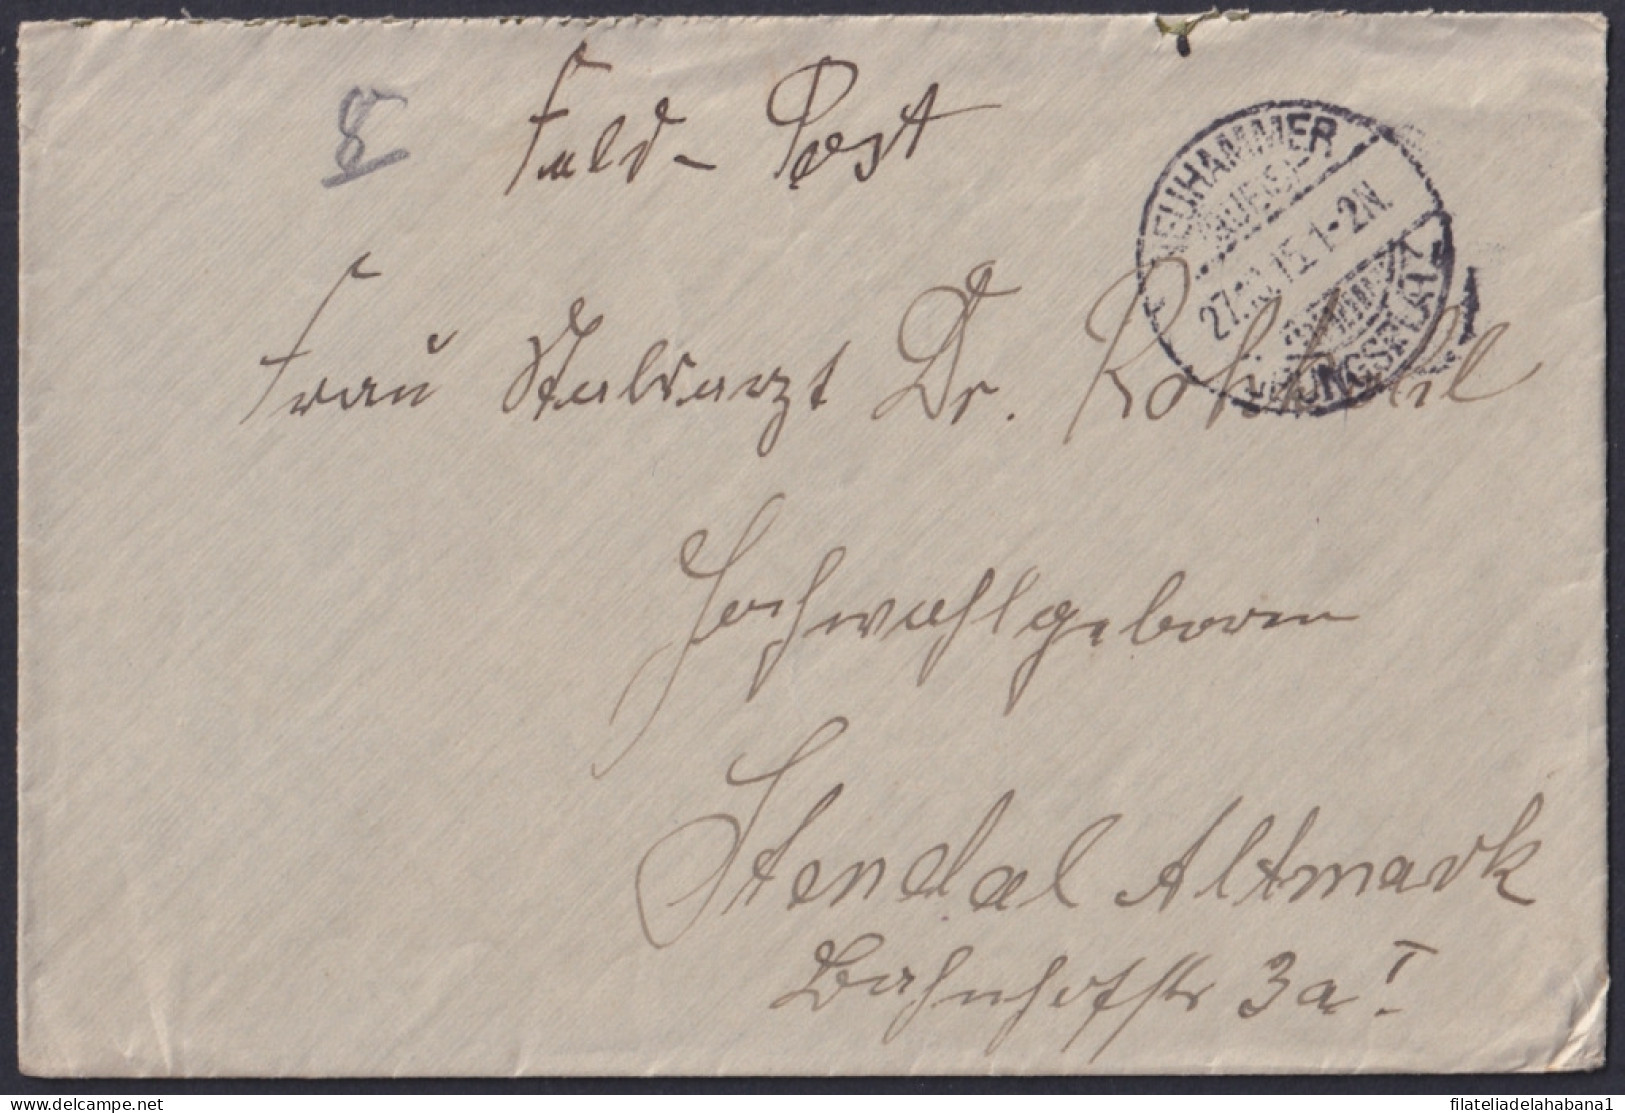 8
Feld-Post
NEUHAMMER
(QUEIS)
27.10.15. 1-2N.
ÜBUNGSPLATZ
Frau Stabsarzt Dr.
Hochwohlgeboren
Stendal Altmark
Bahnhofstr 3a I
filateliadelahabana1
delcampe.net